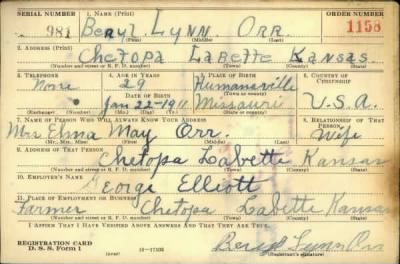 SERIAL NUMBER 1. NAME (Print) ORDER NUMBER
981 Beryl Lynn Orr. 1158
(First) (Middle) (Last)
2. ADDRESS (Print)
Chetopa Labette Kansas.
(Number and street or R. F. D. number) (Town) (County) (State)
3. TELEPHONE 4. AGE IN YEARS 5. PLACE OF BIRTH 6. COUNTRY OF CITIZENSHIP
None 29 Humansville
DATE OF BIRTH (Town or county)
Jan 22-1911 Missouri U.S.A.
(Exchange) (Number) (Mo.) (Day) (Yr.) (State or country)
7. NAME OF PERSON WHO WILL ALWAYS KNOW YOUR ADDRESS 8. RELATIONSHIP OF THAT PERSON
Mrs Elma May Orr. Wife
(Mr., Mrs., Miss) (First) (Middle) (Last)
9. ADDRESS OF THAT PERSON
Chetopa Labette Kansas
(Number and street or R. F. D. number) (Town) (County) (State)
10. EMPLOYER'S NAME
George Elliott
11. PLACE OF EMPLOYMENT OR BUSINESS
Farmer Chetopa Labette Kansas
(Number and street or R. F. D. number) (Town) (County) (State)
I AFFIRM THAT I HAVE VERIFIED ABOVE ANSWERS AND THAT THEY ARE TRUE.
REGISTRATION CARD
D. S. S. Form 1 (over) 16-17105 Beryl Lynn Orr
(Registrant's signature)